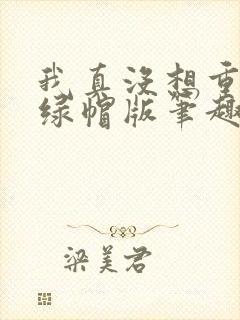 我真没想重
绿帽版笔趣
梁美君